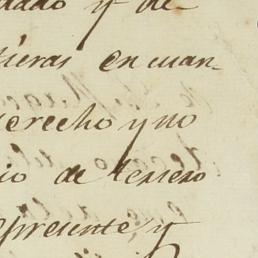 dado y de
tieras en cuan-
derecho y no
cio de tercero
presente, y